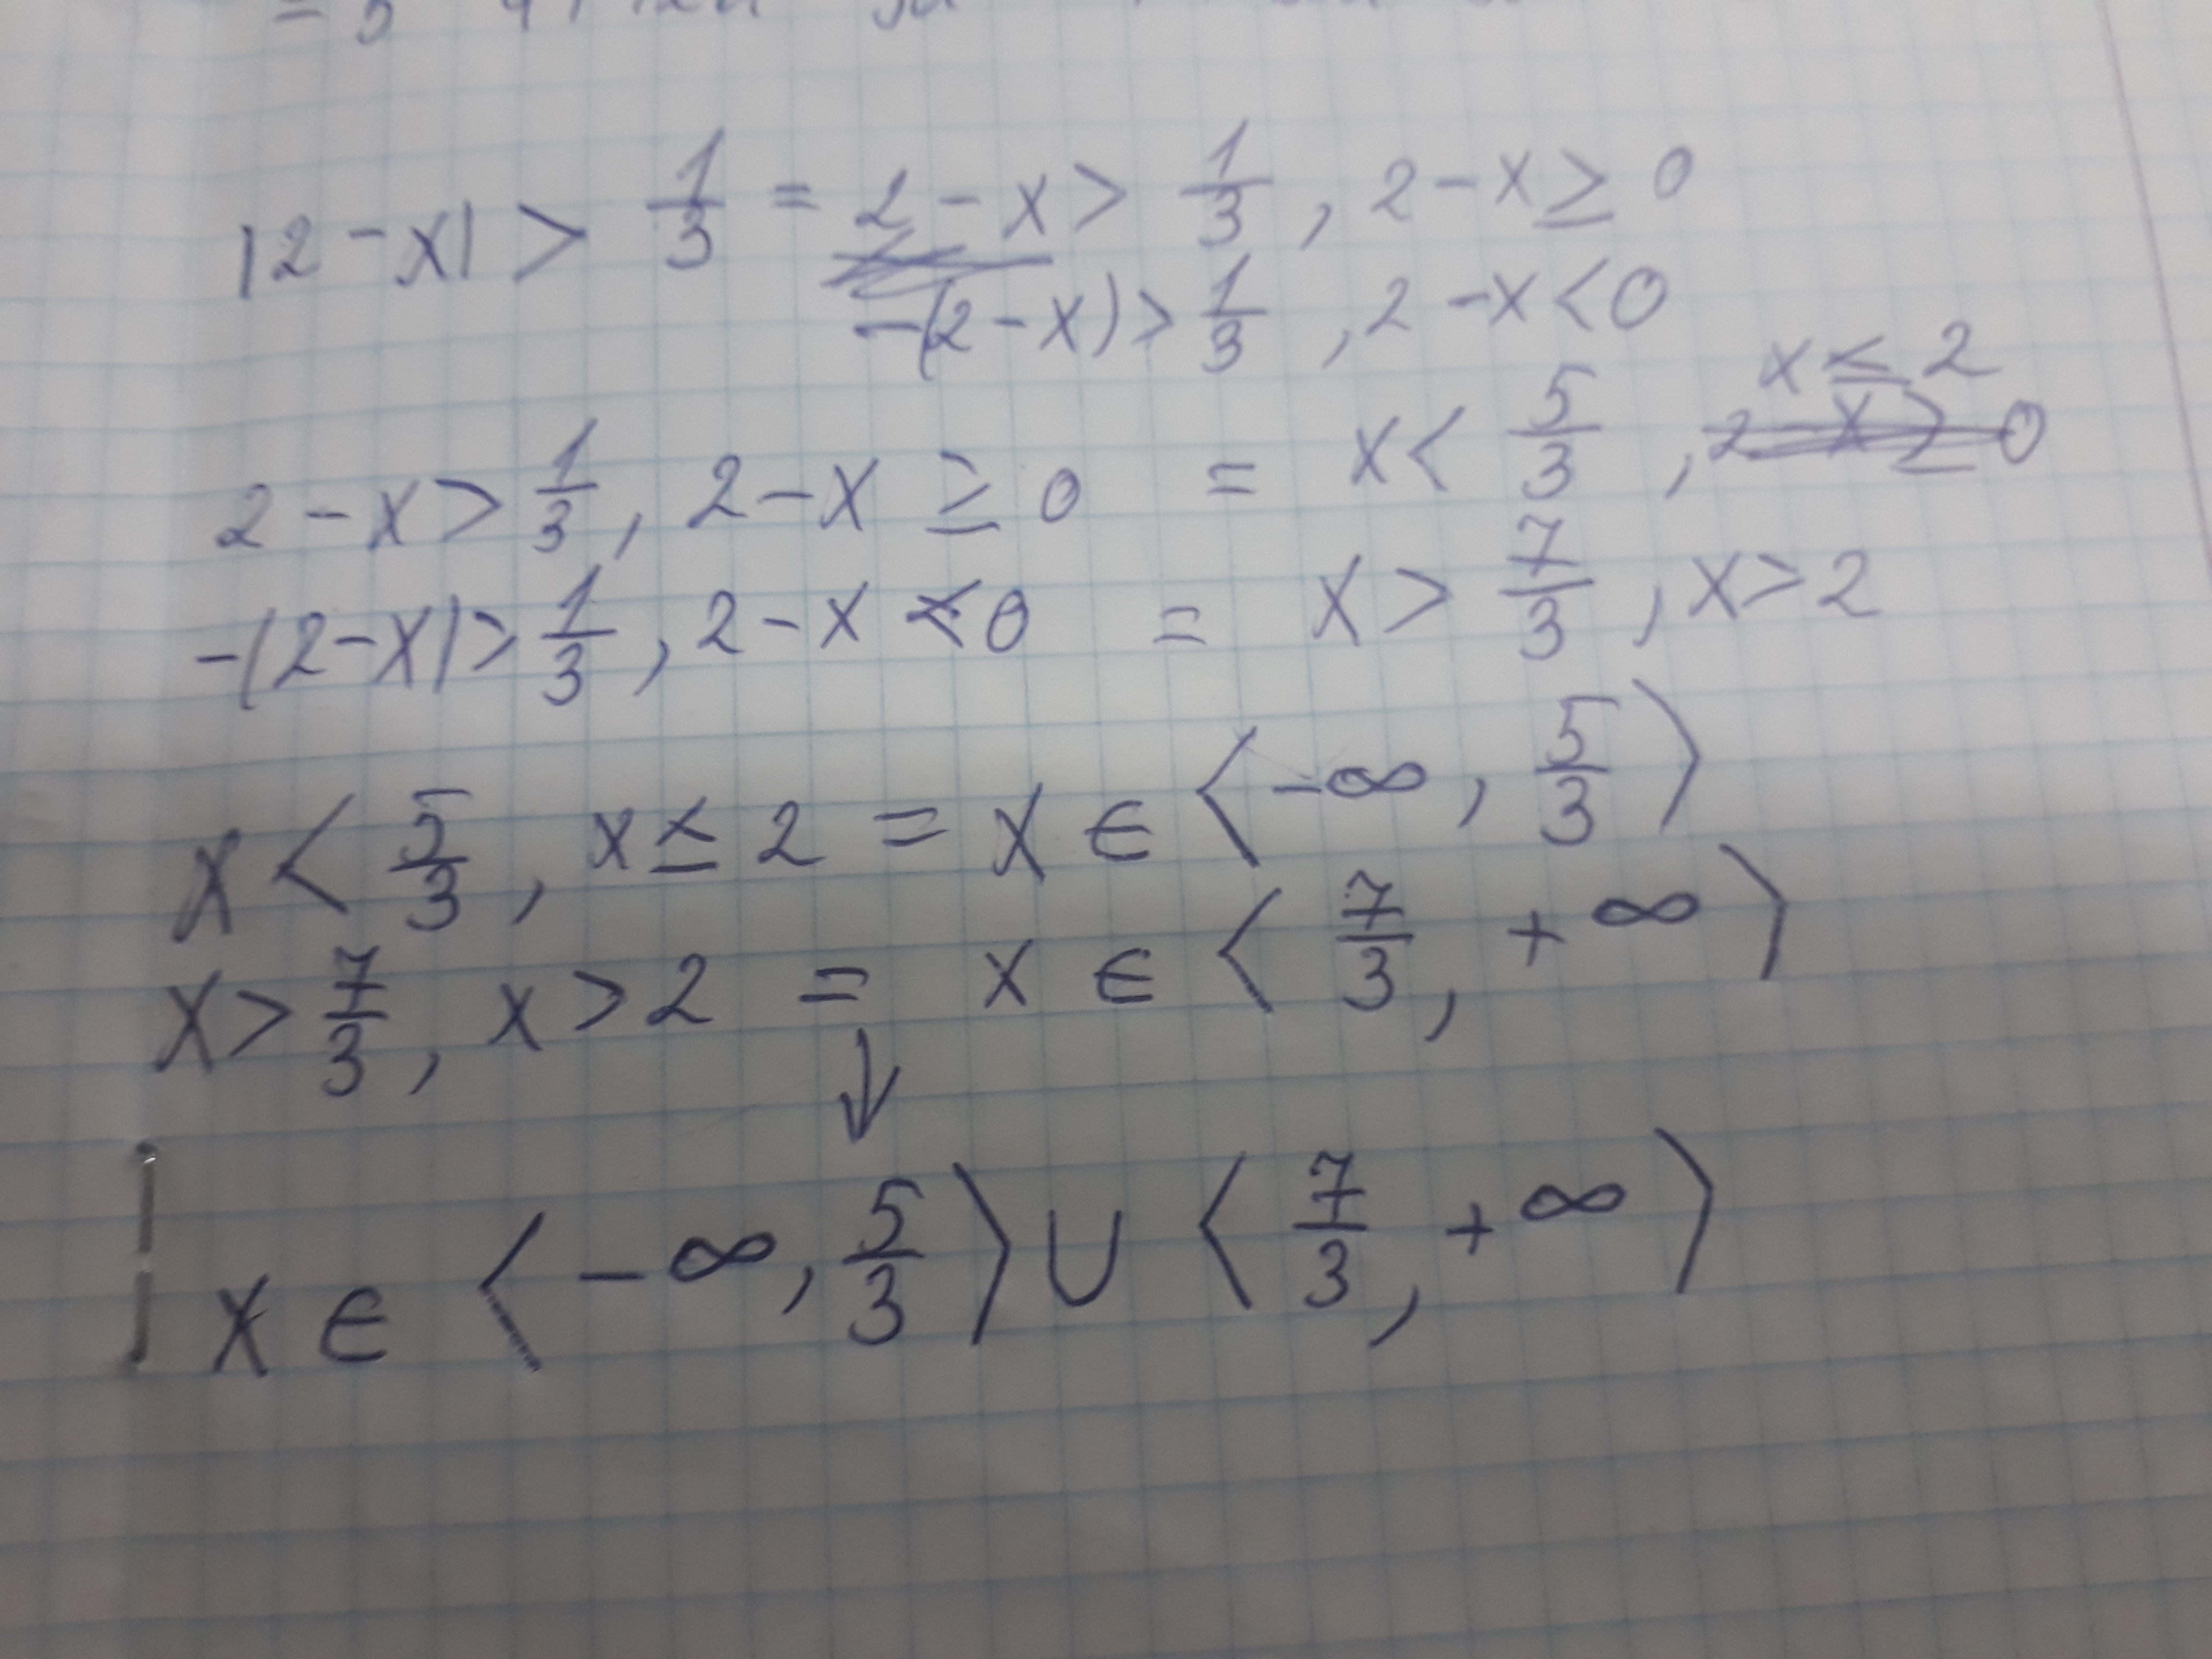 |2-x| > 1/3 = 2-x > 1/3, 2-x ≥ 0
-(2-x) > 1/3, 2-x < 0
x ≤ 2
2-x > 1/3, 2-x ≥ 0 = x < 5/3,
-(2-x) > 1/3, 2-x < 0 = x > 7/3, x > 2
x < 5/3, x ≤ 2 = x ∈ ⟨-∞, 5/3⟩
x > 7/3, x > 2 = x ∈ ⟨7/3, +∞⟩
↓
x ∈ ⟨-∞, 5/3⟩ ∪ ⟨7/3, +∞⟩